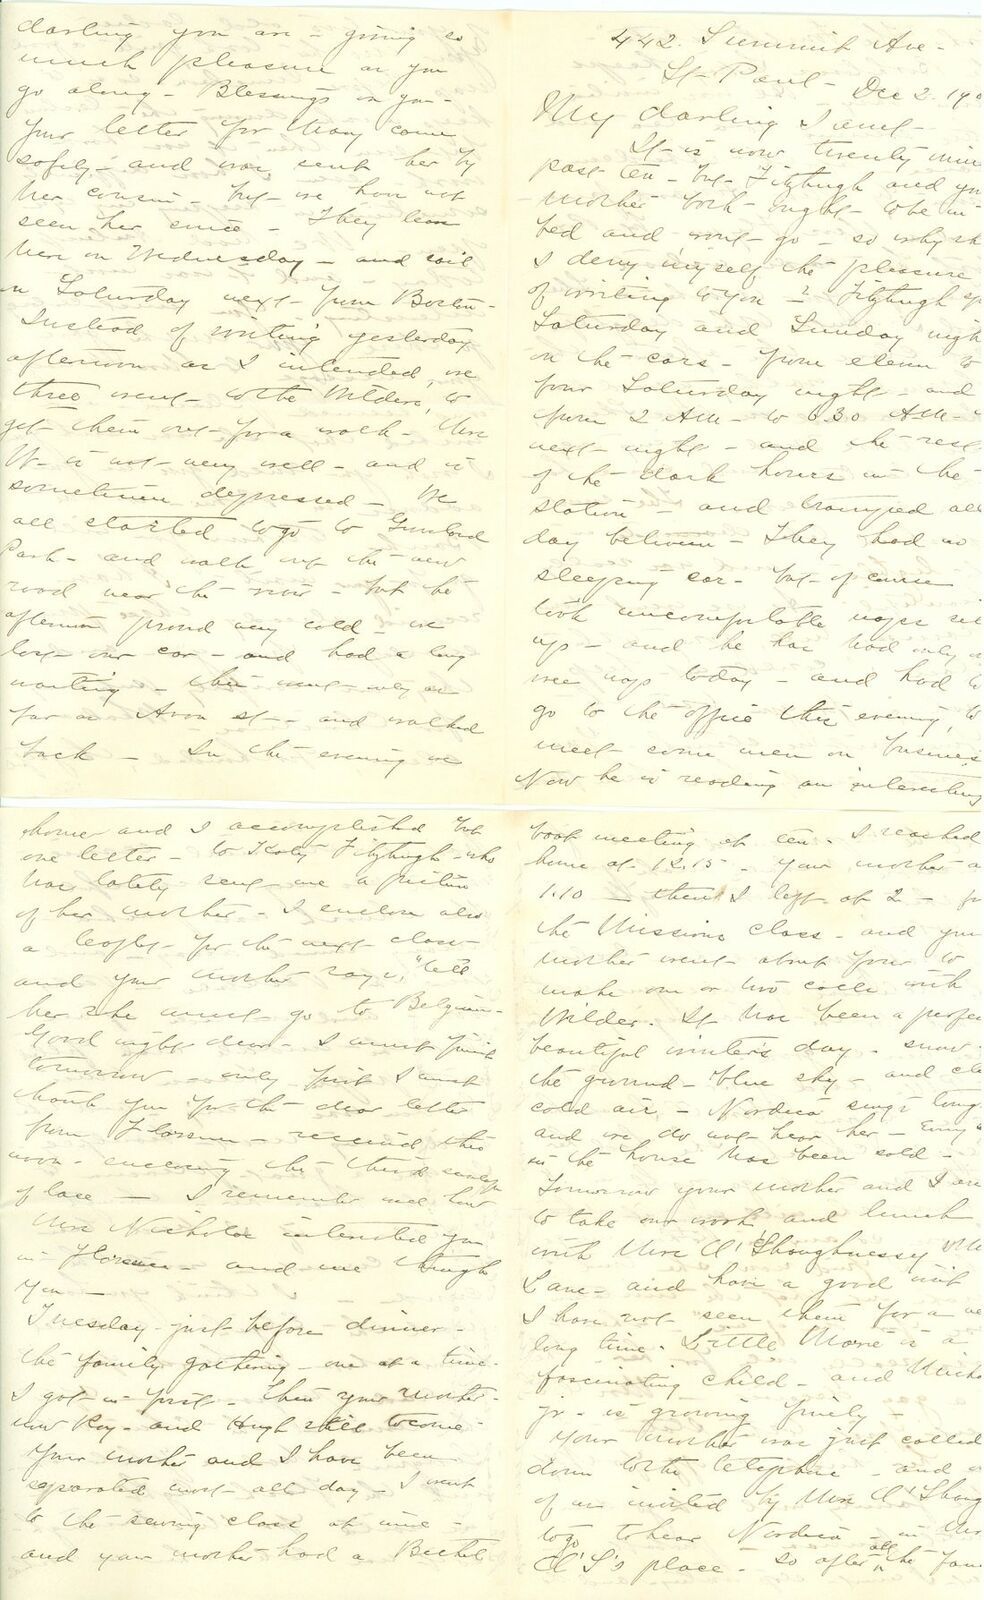 442. Summit Ave-
St- Paul- Dec 2. 190
My darling Janet-
It is now twenty min
past ten- but- Fitzhugh and yo
mother both ought- to be in
bed and wont- go - so why sh
I deny myself the pleasure
of writing to you - ? Fitzhugh sp
Saturday and Sunday nigh
on the cars - from eleven to
four Saturday night - and
from 2 AM - to 6.30 AM -
next- night - and the rest
of the dark hours in the
station - and tramped all
day between - They had no
sleeping car - but- of course
took uncomfortable naps sit
up - and he has had only
wee naps today - and had to
go to the office this evening, to
meet- some men on business
Now he is reading an interesting
darling you are - giving so
much pleasure as you
go along - Blessings on you -
Your letter for Mary came
safely - and was sent her by
her cousin - but- we have not
seen her since - They leave
here on Wednesday - and sail
on Saturday next- from Boston -
Instead of writing yesterday
afternoon as I intended, we
three went- to the Wilders, to
get- them out- for a walk - Mrs
W- is not- very well - and is
sometimes depressed - We
all started to go to
Park - and walk on the new
road near the river - but the
afternoon proved very cold - we
lost- our car - and had a long
waiting - then went- only as
far as Avon St- - and walked
back - In the evening we
home and I accomplished but
one letter - to Katy Fitzhugh - who
has lately sent me a picture
of her mother - I enclose also
a leaflet- for the next class
and your mother says, "tell
her she must- go to Belgium -
Good night dear - I must finish
tomorrow - only first I must
thank you for the dear letter
from Florence - received this
noon - enclosing the third
of lace - I remember well how
Mrs Nichols interested you
in Florence - and we
you -
Tuesday - just before dinner -
the family gathering - one at a time.
I got in first - then your mother -
now Roy - and Hugh still to come -
Your mother and I have been
separated most all day - I went
to the sewing class at nine -
and your mother had a Bethel
boat meeting at ten. I reached
home at 12.15 - Your mother a
1.10 - then I left at 2 - fo
the Missions Class - and you
mother went- about four to
make one or two calls with
Wilder. It has been a perfec
beautiful winter's day - snow
the ground - blue sky - and cle
cold air - Nordica sings tonig
and we do not hear her -
in the house has been sold -
Tomorrow your mother and I are
to take our work and lunch
with Mrs O'Shaughnessy
Lane - and have a good visit
I have not seen them for a ve
long time. Little Marie is a
fascinating child - and Micha
jr - is growing finely -
Your mother was just called
down to the telephone - and
of us invited by Mrs O'Shaug
to go to hear Nordica - in Mr
O'S's place - so after all the fam